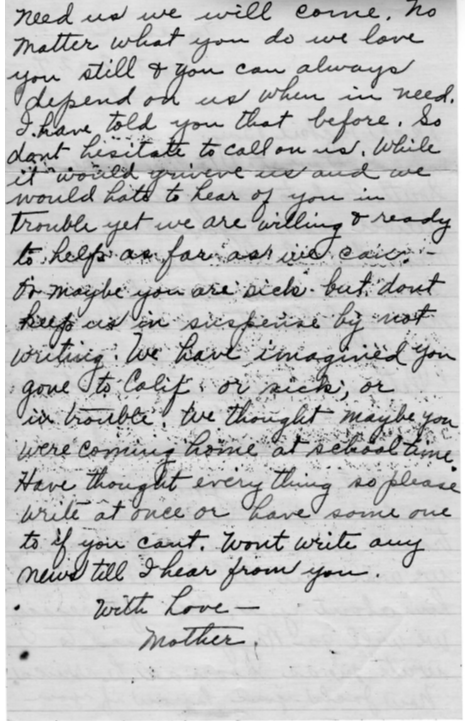 need us we will come. No
matter what you do we love
you still & you can always
depend on us when in need.
I have told you that before. So
dont hesitate to call on us. While
it would griveve us and we
would hate to hear of you in
trouble yet we are willing & ready
to help as far as we can. -
Or maybe you are sick. but dont
keep us in suspense by not
writing. We have imagined you
gone to Calif. or sick, or
in trouble. We thought maybe you
were coming home at school time.
Have thought every thing so please
write at once or have some one
to if you cant. Wont write any
news till I hear from you.
With Love —
Mother.